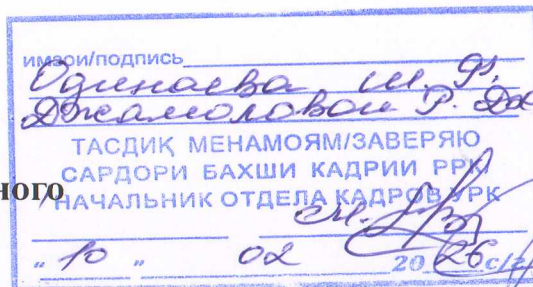 имзои/подпись
Одинаева Ш. Ф.
Джамоловой Р. Дж
ТАСДИҚ МЕНАМОЯМ/ЗАВЕРЯЮ
САРДОРИ БАХШИ КАДРИИ РРК
ного НАЧАЛЬНИК ОТДЕЛА КАДРОВ УРК
" 10 " 02 2026 с/г